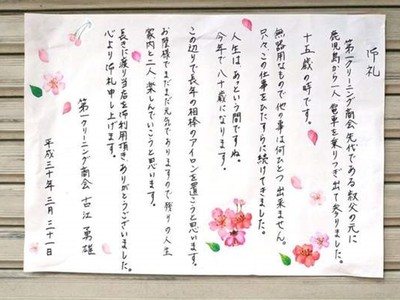 御礼
第一クリーニング商会先代である叔父の元に
鹿児島から一人、電車を乗りつぎ出て参りました。
十五歳の時です。
無器用なもので他の事は何ひとつ出来ません。
只々、この仕事をひたすらに続けてきました。
人生は、あっという間ですね。
今年で八十歳になります。
この辺りで長年の相棒のアイロンを置こうと思います。
お陰様でまだまだ元気でありますので残りの人生
家内と二人で楽しんでいこうと思います。
長きに渡り当店を御利用頂き、ありがとうございました。
心より御礼申し上げます。
第一クリーニング商会 古江 勇雄
平成三十年 三月 三十一日